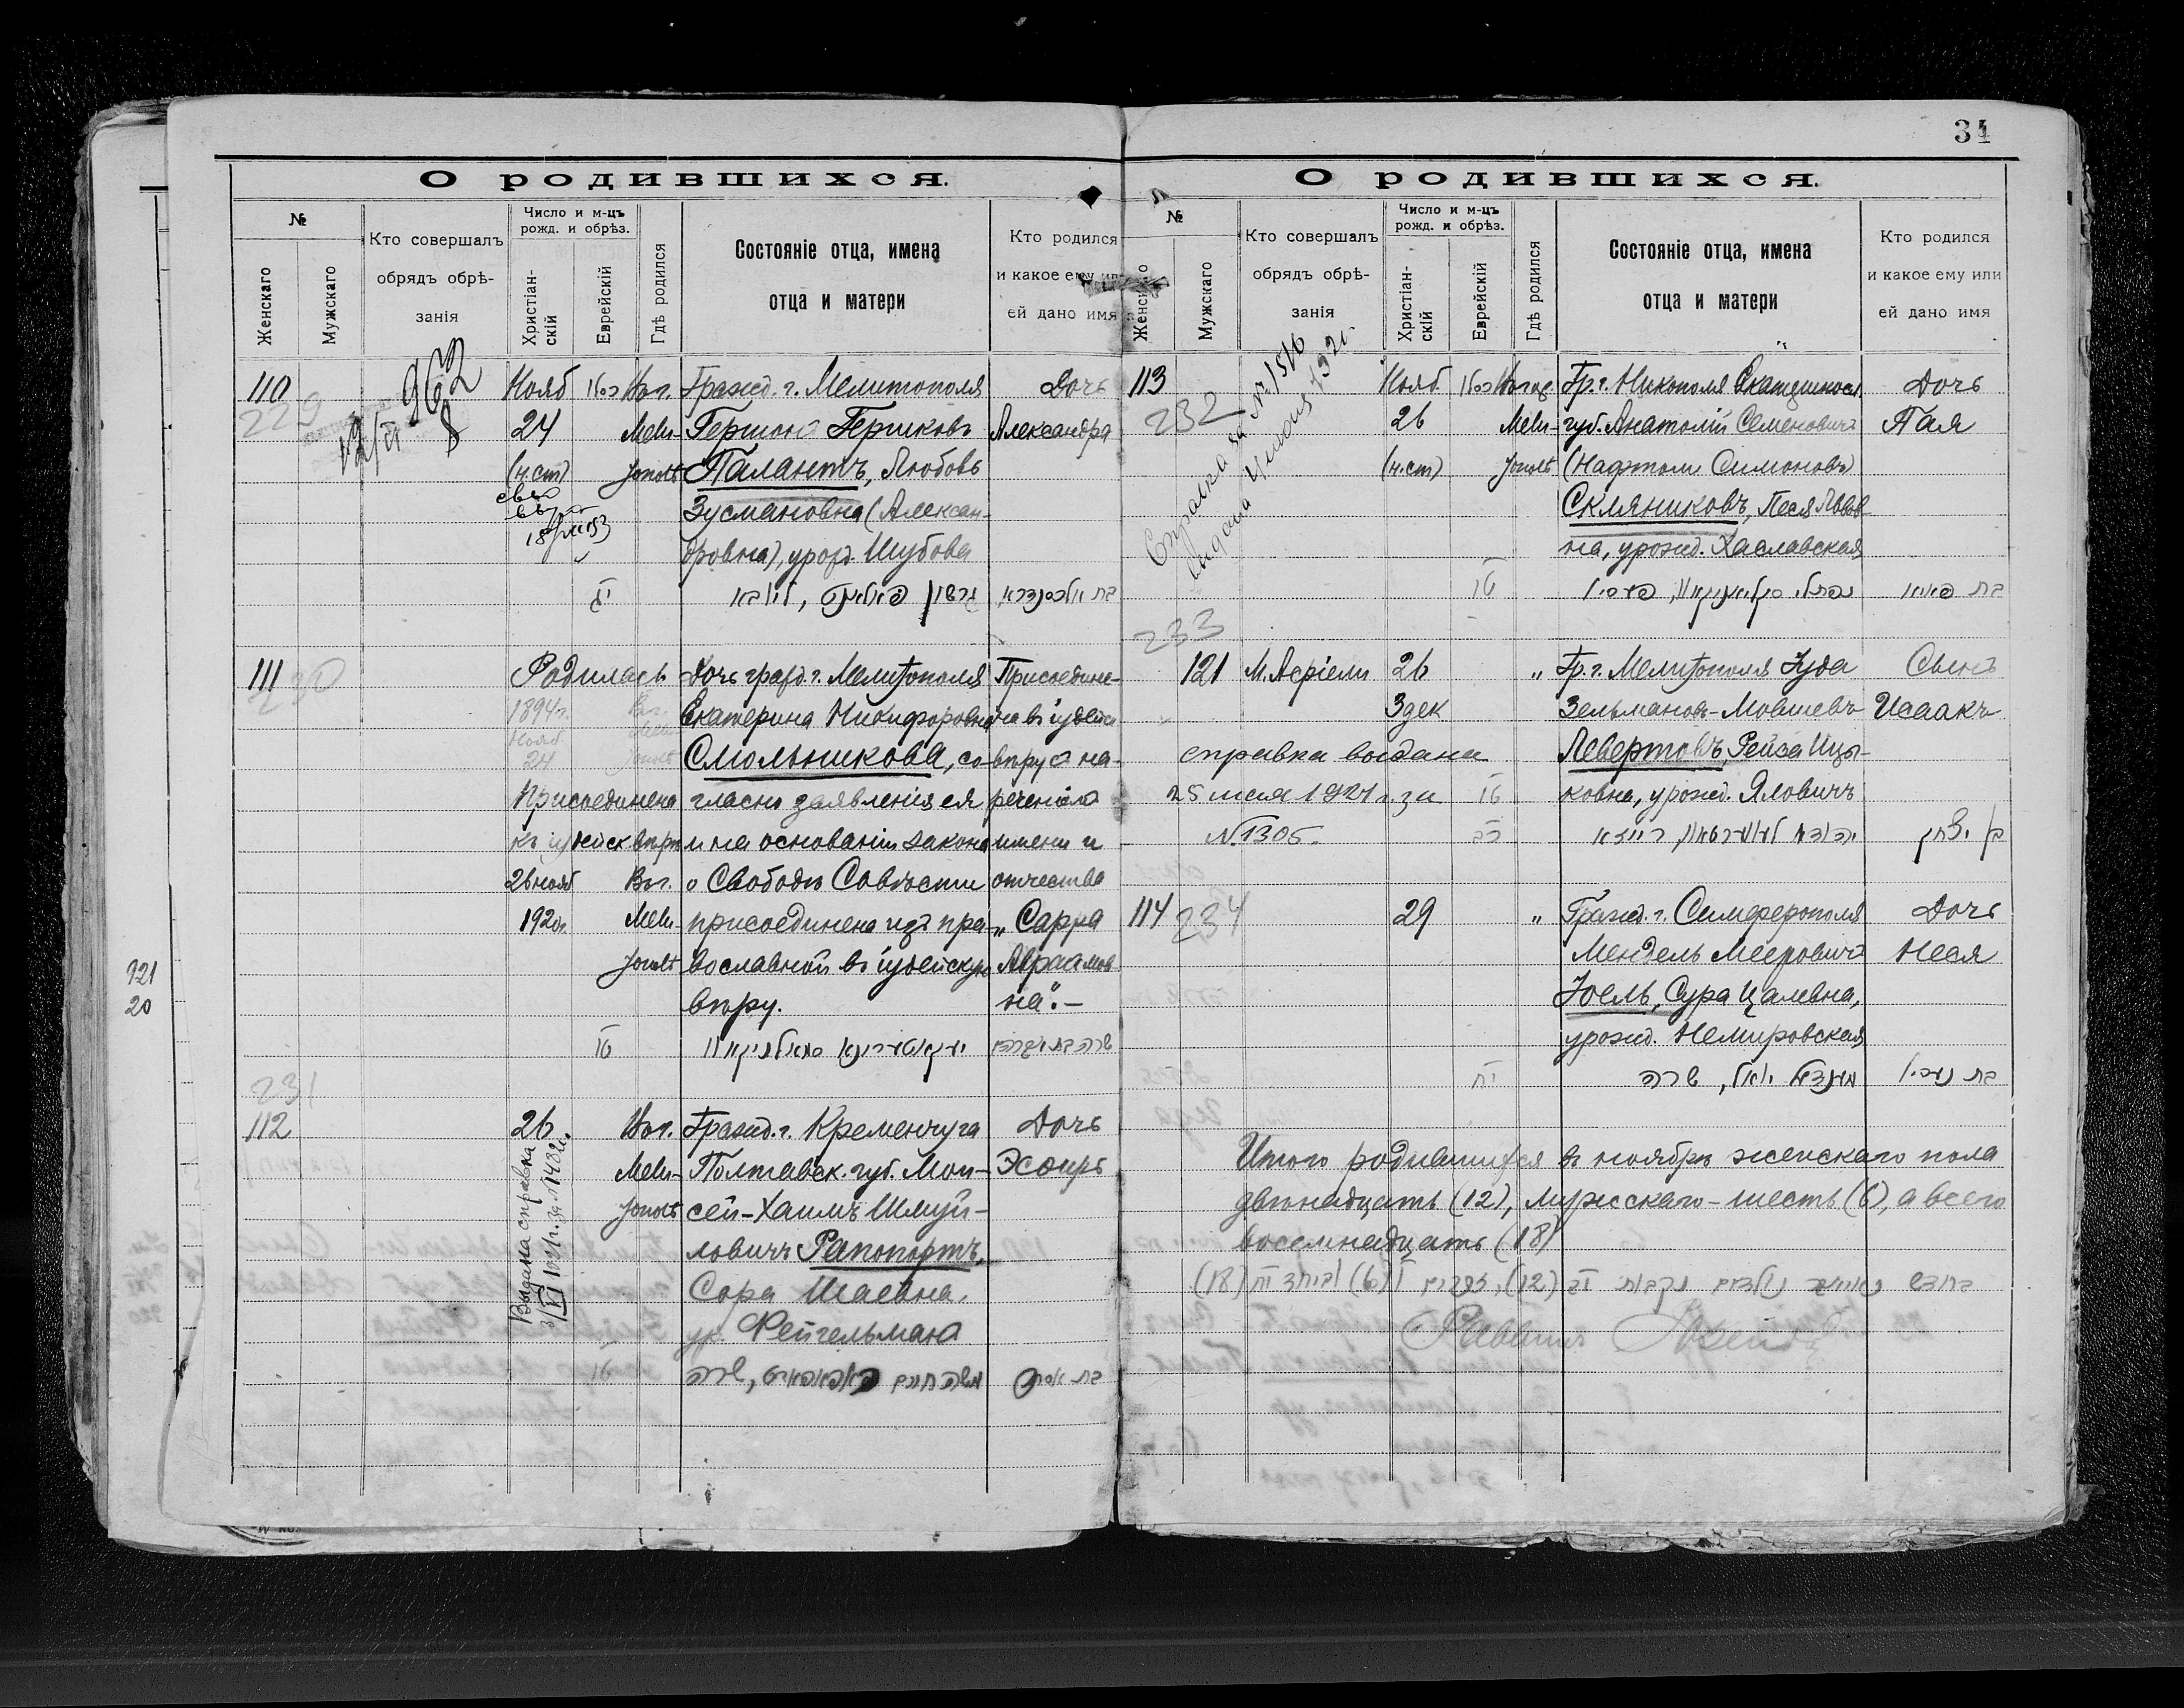 34
О РОДИВШИХСЯ.
№
Женскаго
Мужскаго
Кто совершалъ
обрядъ обрѣ-
занія
Число и м-цъ
рожд. и обрѣз.
Христіан-
скій
Еврейскій
Гдѣ родился
Состояніе отца, имена
отца и матери
Кто родился
и какое ему или
ей дано имя
110
229
962
8
12/VI
Нояб
24
(н.ст)
כסלו
יג
Мели-
Гражд. г. Мелитополя
Гершонъ Гершковъ
Палантъ, Любовь
Зусмановна (Алексан-
дровна), урожд. Шубова
Дочь
Александра
בת אלכסנדרא
111
230
Родилась
1894г.
Нояб
24
Присоединена
26 нояб
1920г.
Мели-
טו
Дочь гражд. г. Мелитополя
Екатерина Никифоровна
Смольникова, со-
гласно заявленія ея
и на основаніи закона
о Свободѣ Совѣсти
присоединена изъ пра-
вославной въ іудейскую
вѣру.
Присоедине-
на въ іудейск
вѣру съ на-
реченіемъ
имени и
отчества
„Сарра
Авраамов
на“.—
231
112
26
Выдана справка
טו
Мели-
Гражд. г. Кременчуга
Полтавск. губ. Мои-
сей-Хаимъ Шмуй-
ловичъ Рапопортъ,
Сора Шаевна,
ур. Фейгельманъ
משה חיים ראפאפארט, שרה
Дочь
Эсѳирь
921
20
О РОДИВШИХСЯ.
№
Женскаго
Мужскаго
Кто совершалъ
обрядъ обрѣ-
занія
Число и м-цъ
рожд. и обрѣз.
Христіан-
скій
Еврейскій
Гдѣ родился
Состояніе отца, имена
отца и матери
Кто родился
и какое ему или
ей дано имя
113
232
Справка за № 1516
Нояб.
26
(н.ст)
כסלו
טו
Мели-
Гр. г. Никополя Екатеринося
губ. Анатолій Семеновичъ
(Нафтоли Симоновъ)
Скляниковъ, Песя Львов
на, урожд. Хаславская
Дочь
Пая
בת פאיא
233
121
М. Асріели
26
3 дек
„
справка выдана
25 мая 1921 г. за
№ 1305.
טו
כב
Гр. г. Мелитополя Іуда
Зельмановъ-Мовшевъ
Левертовъ, Рейза Ицы-
ковна, урожд. Яловичъ
Сынъ
Исаакъ
בן יצחק
114
234
29
„
יח
Гражд. г. Симферополя
Мендель Мееровичъ
Іоель, Сура Цалевна,
урожд. Немировская
מענדיל יואל, שרה
Дочь
Неся
Итого родившихся въ ноябрѣ женскаго пола
двѣнадцать (12), мужскаго – шесть (6), а всего
восемнадцать (18)
בחדש נאיאבר נולדים נקבות יב (12), זכרים ו (6) וביחד יח (18)
Раввинъ